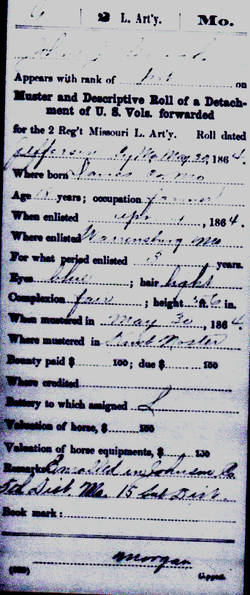 2 L. Art'y. Mo.
Appears with rank of Pvt on
Muster and Descriptive Roll of a Detachment of U. S. Vols. forwarded
for the 2 Reg't Missouri L. Art'y. Roll dated
Jefferson City Mo May 30, 1864.
Where born Co Mo
Age 18 years; occupation farmer
When enlisted , 1864.
Where enlisted Warrensburg Mo
For what period enlisted 3 years.
Eyes blue ; hair light
Complexion fair ; height
When mustered in May 30 , 1864
Where mustered in
Bounty paid $ 100; due $ 100
Where credited
Battery to which assigned L
Valuation of horse, $ 100
Valuation of horse equipments, $ 100
Remarks: Enrolled in Johnson Co
Dist. Mo. 15
Book mark:
Morgan
Copyist.